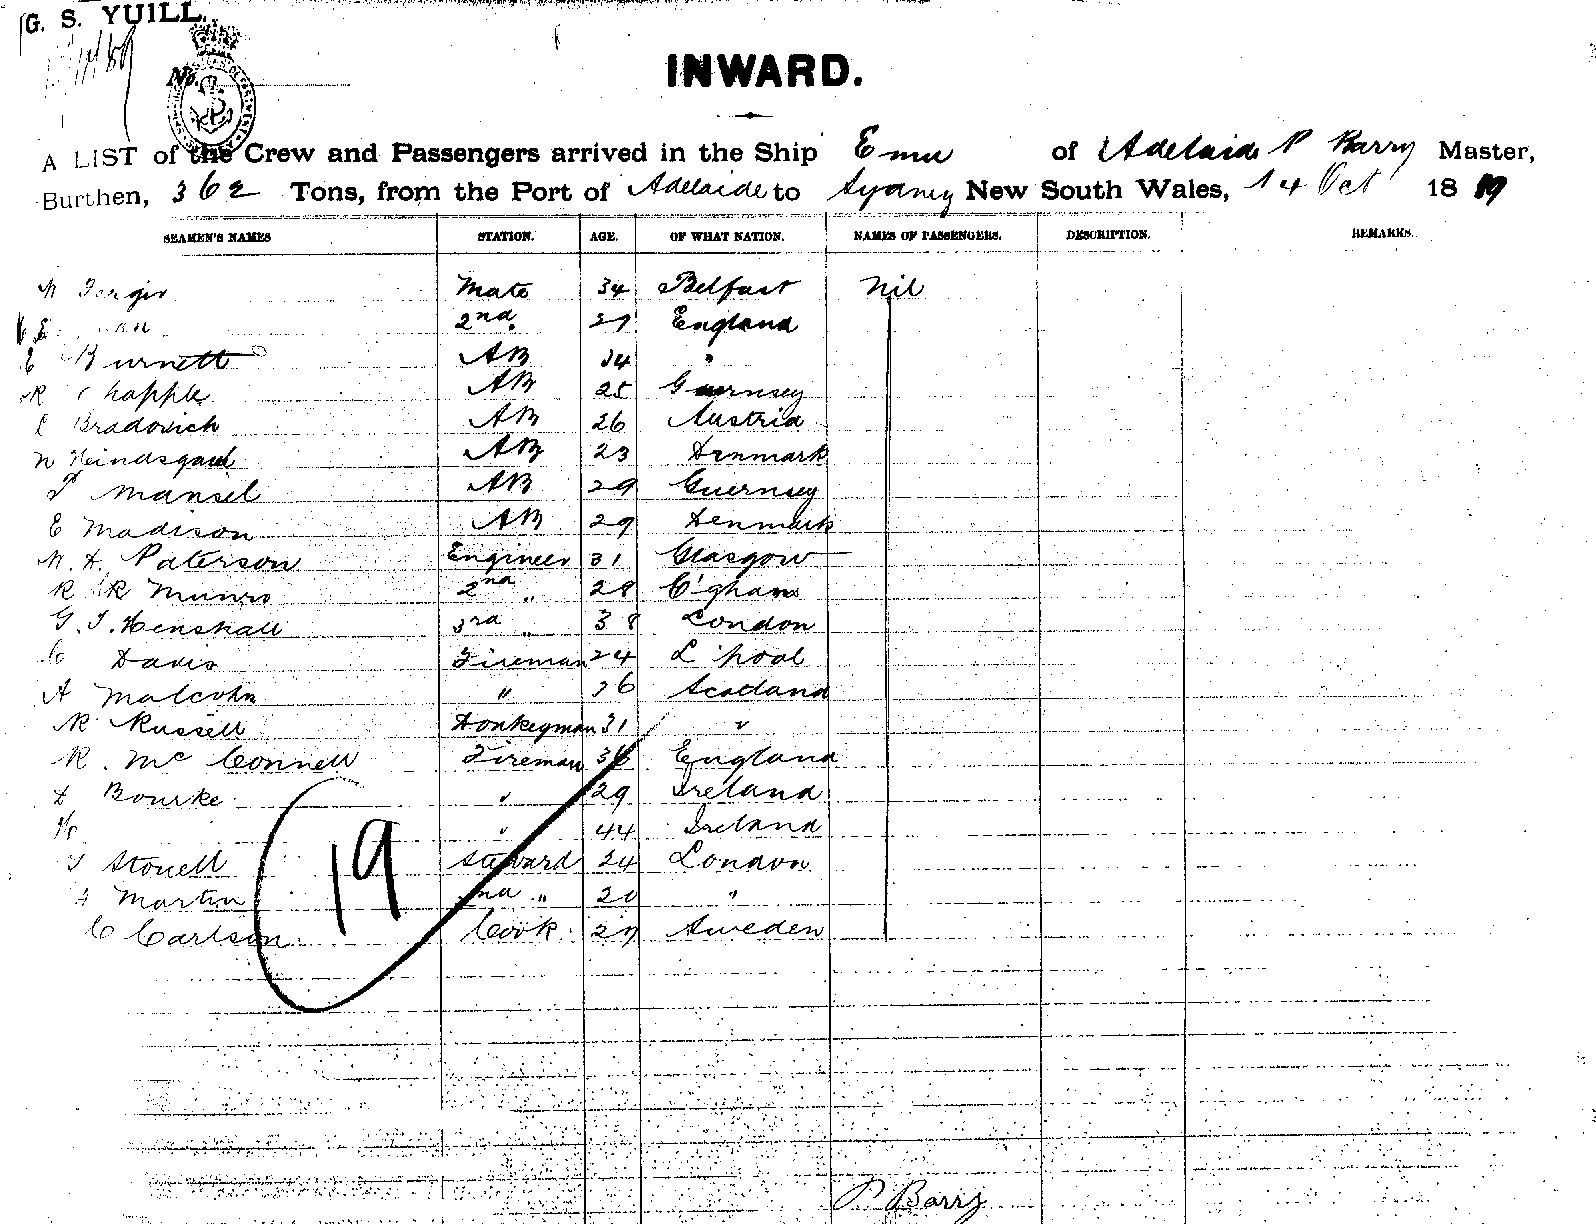 G. S. YUILL.
No.
INWARD.
A LIST of the Crew and Passengers arrived in the Ship Emu of Adelaide P Barry Master,
Burthen, 362 Tons, from the Port of Adelaide to Sydney New South Wales, 14 Oct 1889
SEAMEN'S NAMES STATION. AGE. OF WHAT NATION. NAMES OF PASSENGERS. DESCRIPTION. REMARKS.
Mate 34 Belfast Nil
2nd. 27 England
Burnett AB 34 "
R Chapple AB 25 Guernsey
Bradovich AB 26 Austria
AB 23 Denmark
Mansel AB 29 Guernsey
E Madison AB 29 Denmark
Paterson Engineer 31 Glasgow
R Munro 2nd " 28 B'gham
G. T. Henshall 3rd " 38 London
Davis Fireman 24 L'pool
A Malcolm " 36 Scotland
R Russell Donkeyman 31 "
R. McConnell Fireman 36 England
Bourke " 29 Ireland
" 44 Ireland
Stonell Steward 24 London
Martin 2nd " "
C Carlson Cook 27 Sweden
19
P Barry